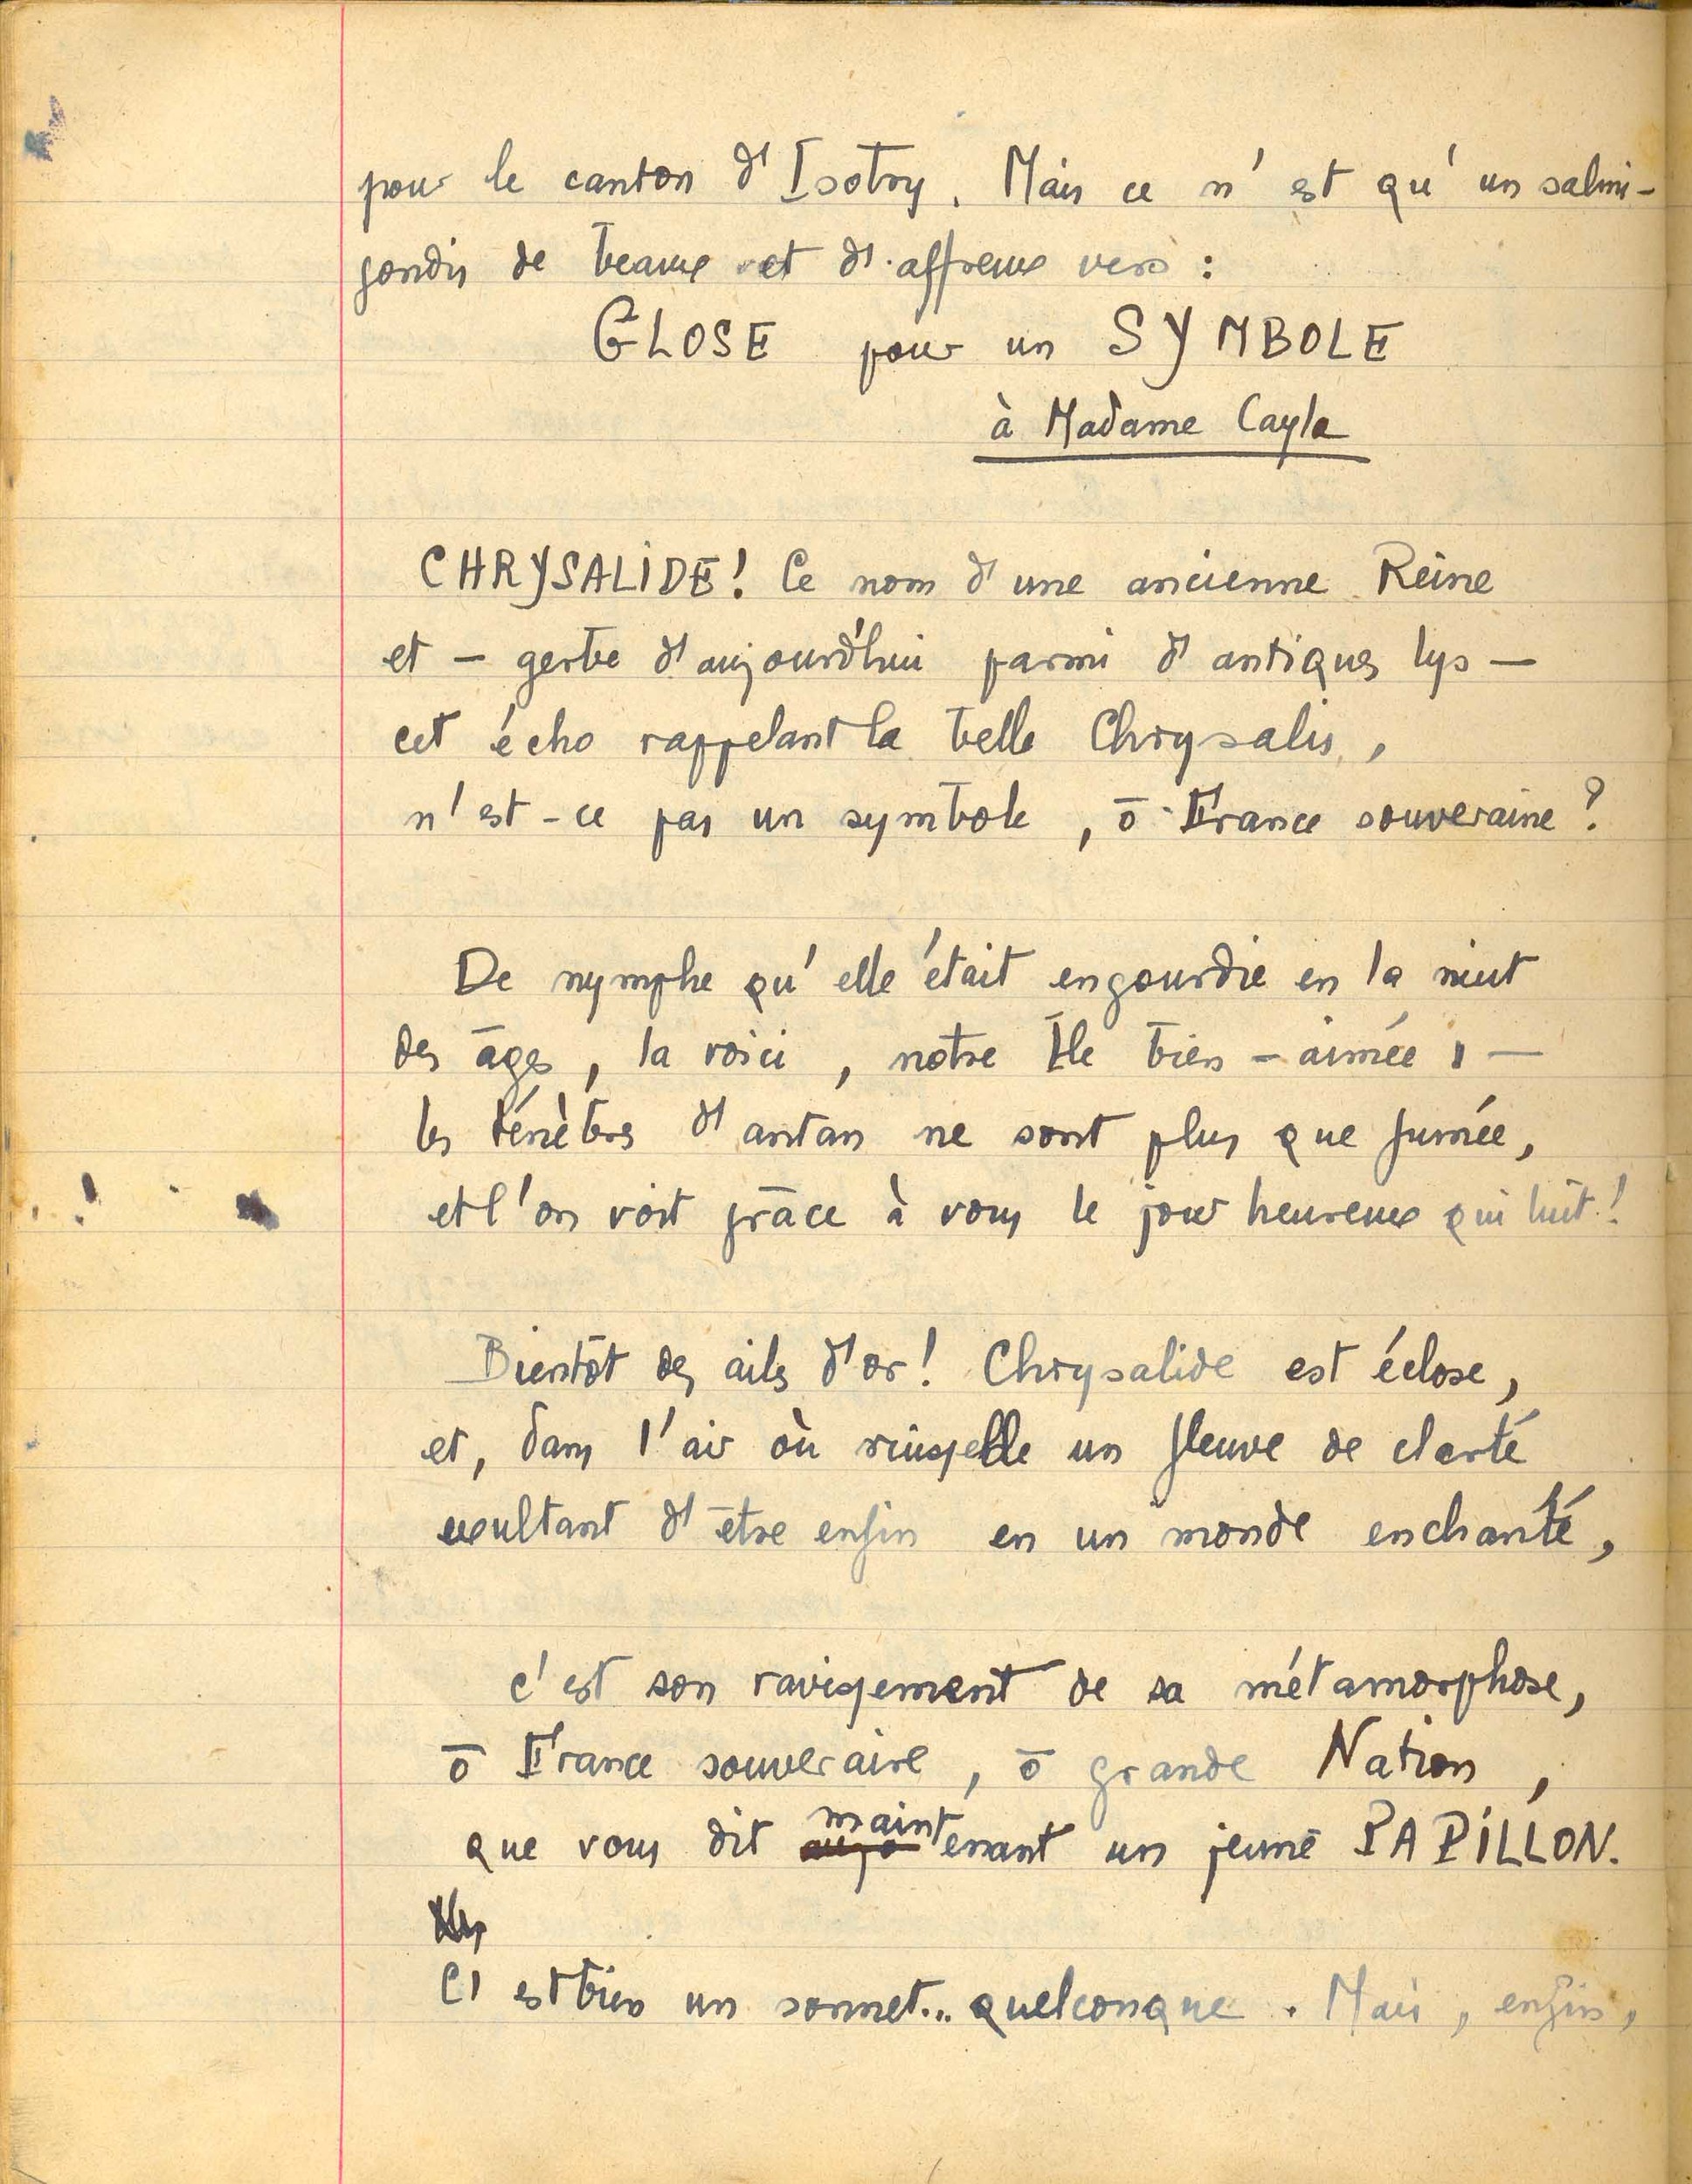 pour le canton d'Isotry. Mais ce n'est qu'un salmi-
gondis de beaux et d'affreux vers :
GLOSE pour un SYMBOLE
à Madame Cayla
CHRYSALIDE! Ce nom d'une ancienne Reine
et – gerbe d'aujourd'hui parmi d'antiques lys –
cet écho rappelant la belle Chrysalis,
n'est-ce pas un symbole, ô France souveraine?
De nymphe qu'elle était engourdie en la nuit
des âges, la voici, notre Île bien-aimée, –
les ténèbres d'antan ne sont plus que fumée,
et l'on voit grâce à vous le jour heureux qui luit!
Bientôt des ailes d'or! Chrysalide est éclose,
et, dans l'air où ruisselle un fleuve de clarté
exultant d'être enfin en un monde enchanté,
c'est son ravissement de sa métamorphose,
ô France souveraine, ô grande Nation,
que vous dit maintenant un jeune PAPILLON.
C'est bien un sonnet... quelconque. Mais, enfin,